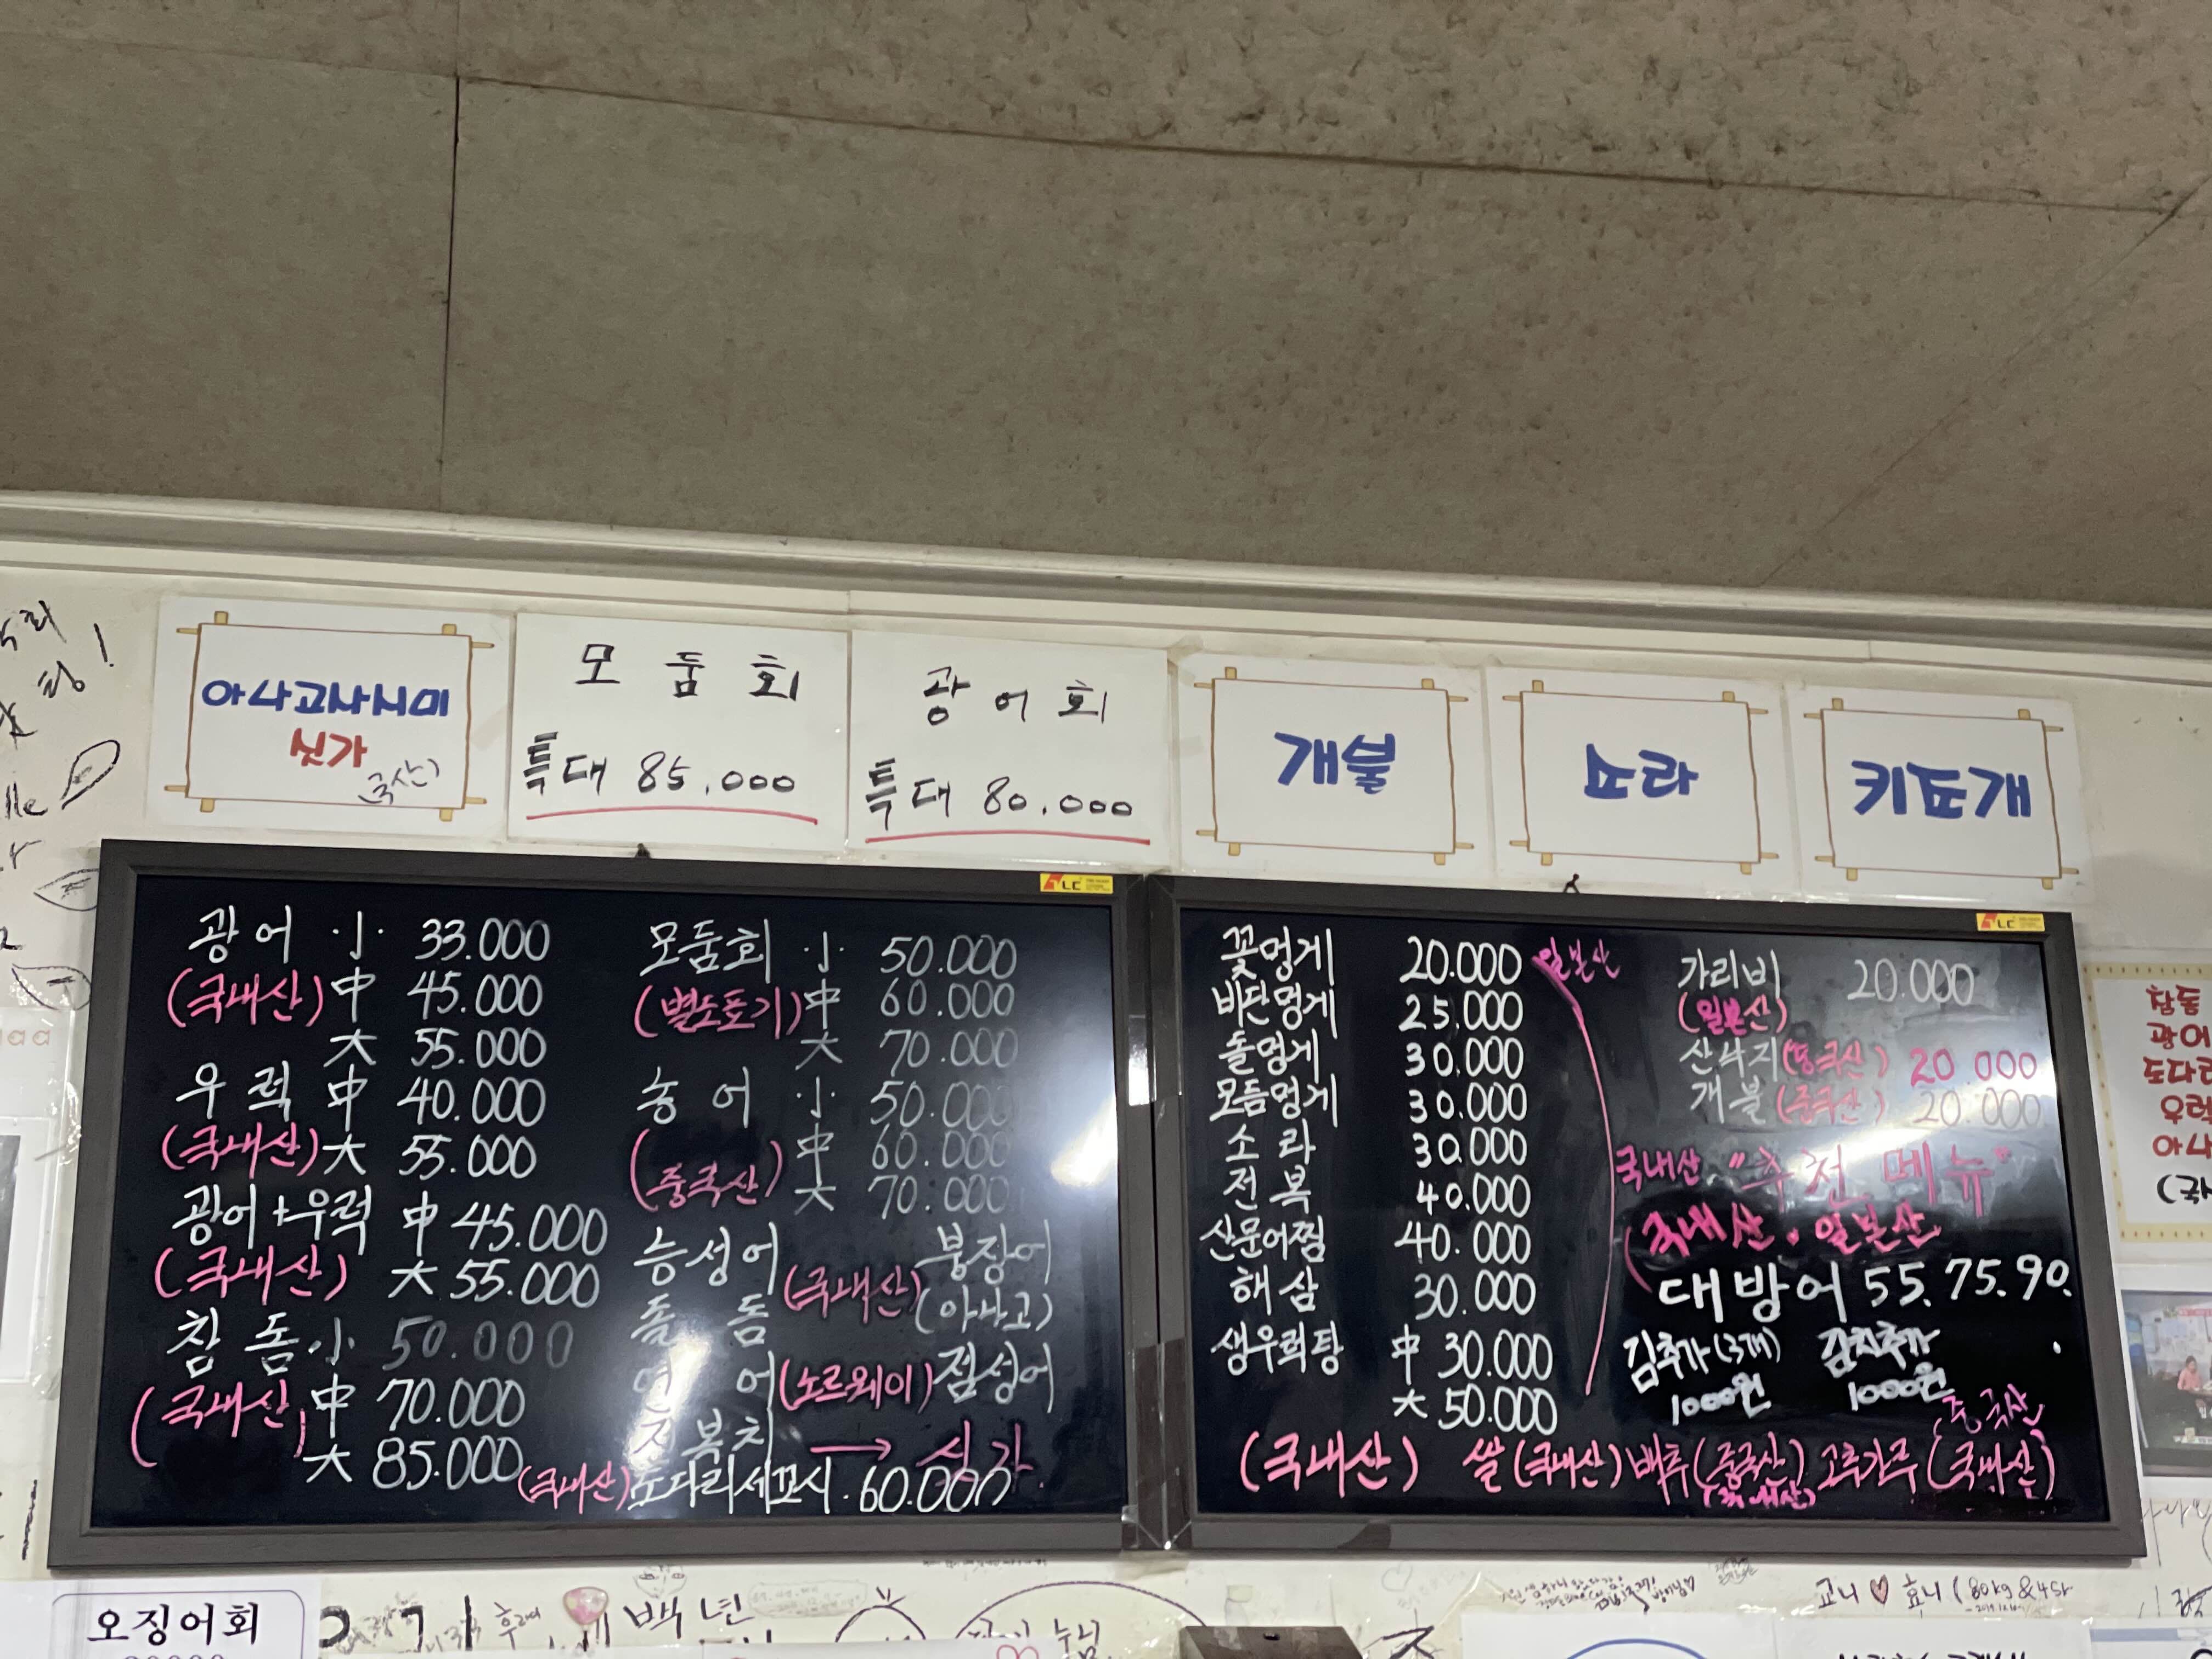 아나고사시미
싯가
(국산)
모둠회
특대 85,000
광어회
특대 80.000
개불
소라
키조개
광어 小 33.000
(국내산) 中 45.000
大 55.000
우럭 中 40.000
(국내산) 大 55.000
광어+우럭 中 45.000
(국내산) 大 55.000
참돔 小 50.000
(국내산) 中 70.000
大 85.000
모둠회 小 50.000
(별도표기) 中 60.000
大 70.000
농어 小 50.000
(중국산) 中 60.000
大 70.000
능성어 (국내산) 붕장어
돌돔 (아나고)
연어 (노르웨이) 점성어
줄복치 → 싯가
(국내산) 도다리세꼬시 60.000
꽃멍게 20.000 일본산
비단멍게 25.000
돌멍게 30.000
모듬멍게 30.000
소라 30.000
전복 40.000
산문어찜 40.000
해삼 30.000
생우럭탕 中 30.000
大 50.000
가리비 20.000
(일본산)
산낙지(중국산) 20 000
개불(중국산) 20.000
국내산 "추천 메뉴"
(국내산. 일본산
대방어 55. 75. 90.
김추가(3개) 김치추가
1000원 1000원
중국산
(국내산) 쌀(국내산) 배추(중국산) 고추가루(국내산)
(국내산)
참돔
광어
도다리
우럭
아나
(국
오징어회
백년
교니♡효니 (80kg &45